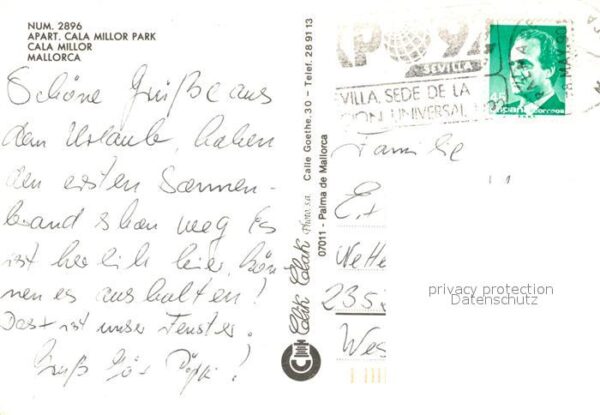 NUM. 2896
APART. CALA MILLOR PARK
CALA MILLOR
MALLORCA
Schöne Grüße aus
dem Urlaub, haben
den ersten Sonnen-
brand schon weg Es
ist herrlich hier, kön
nen es aushalten!
Das ist unser Fenster.
Gruß
Clik Clak Photo, s.a. Calle Goethe, 30 – Telef. 28 91 13
07011 - Palma de Mallorca
PO 92
SEVILLA
VILLA, SEDE DE LA
CION UNIVERSAL
48
España correos
Familie
E.
Nette
235
Wes
privacy protection
Datenschutz